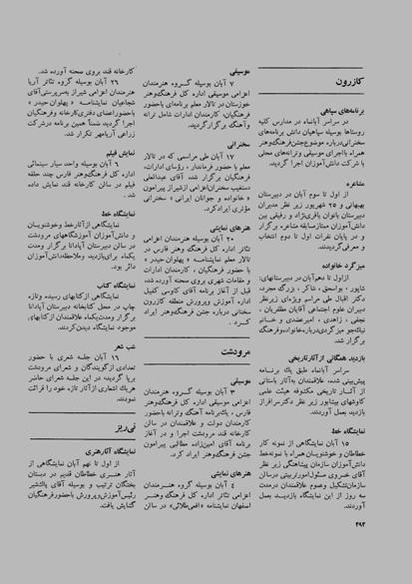 کازرون
برنامه‌های سپاهی
در سراسر آبانماه در مدارس کلیه
روستاها بوسیله سپاهیان دانش برنامه‌های
سخنرانی درباره موضوع جشن فرهنگ و هنر
همراه با اجرای موسیقی و ترانه‌های محلی
با شرکت دانش‌آموزان اجرا گردید.
مشاعره
از اول تا سوم آبان در دبیرستان
بهبهانی و ۲۵ شهریور زیر نظر مدیران
دبیرستان بانوان باقری‌نژاد و رفیقی بین
دانش‌آموزان ممتاز مسابقه مشاعره برگزار
و در پایان نفرات اول تا دوم انتخاب
و معرفی گردیدند.
میزگرد خانواده
از اول تا دهم آبان در دبیرستانهای:
شاپور، بواسحق، شاکر، بزرگ مجرد،
دکتر اقبال طی مراسم ویژه‌ای زیر نظر
دبیران علوم اجتماعی آقایان مظفریان،
نجفی، زاهدی، امیرعضدی و خانم
نیک‌جو میزگردی درباره خانواده و فرهنگ
برگزار شد.
بازدید همگانی از آثار تاریخی
سراسر آبانماه طبق یک برنامه
پیش‌بینی شده، علاقمندان به آثار باستانی
از آثار تاریخی مکشوفه هیئت علمی
کاوشهای بیشاپور زیر نظر دکتر سرافراز
بازدید بعمل آوردند.
نمایشگاه خط
۱۵ آبان نمایشگاهی از نمونه کار
خطاطان و خوشنویسان همراه با نمونه خط
دانش‌آموزان سازمان پیشاهنگی زیر نظر
آقای خسروی مسئول امور تربیتی در سالن
سازمان تشکیل و عموم علاقمندان در مدت
سه روز از این نمایشگاه بازدید بعمل
آوردند.
موسیقی
۷ آبان بوسیله گروه هنرمندان
اعزامی موسیقی اداره کل فرهنگ و هنر
خوزستان در تالار معلم برنامه‌ای با حضور
فرهنگیان، کارمندان ادارات شامل ترانه
و آهنگ برگزار گردید.
سخنرانی
۱۷ آبان طی مراسمی که در تالار
معلم با حضور فرماندار، رؤسای ادارات،
فرهنگیان برگزار شد، آقای عبدالعلی
دستغیب سخنران اعزامی از شیراز پیرامون
«خانواده و جوانان ایرانی» سخنرانی
مؤثری ایراد کرد.
هنرهای نمایشی
۲۰ آبان بوسیله گروه هنرمندان
تئاتر اداره کل فرهنگ و هنر فارس در
تالار معلم نمایشنامه «پهلوان حیدر»
با حضور فرهنگیان، کارمندان ادارات
و مقامات شهری بروی صحنه آورده شد،
قبل از آغاز برنامه آقای کاوسی کفیل
اداره آموزش و پرورش منطقه کازرون
سخنانی درباره جشن فرهنگ و هنر ایراد
کرد.
مرودشت
موسیقی
۳ آبان بوسیله گروه هنرمندان
اعزامی موسیقی اداره کل فرهنگ و هنر
فارس، یک برنامه آهنگ و ترانه با حضور
کارمندان دولت و علاقمندان در سالن
کارخانه قند مرودشت اجرا و در آغاز
برنامه آقای امین‌زاده مطالبی پیرامون
جشن فرهنگ و هنر ایراد کرد.
هنرهای نمایشی
۴ آبان بوسیله گروه هنرمندان
اعزامی تئاتر اداره کل فرهنگ و هنر
اصفهان نمایشنامه «افعی طلائی» در سالن
کارخانه قند بروی صحنه آورده شد.
۲۶ آبان بوسیله گروه تئاتر آریا
هنرمندان اعزامی شیراز به سرپرستی آقای
شجاعیان نمایشنامه «پهلوان حیدر»
با حضور اعضای دفتری کارخانه و فرهنگیان
اجرا گردید ضمناً همین برنامه در شرکت
زراعی آریامهر تکرار شد.
نمایش فیلم
۶ آبان بوسیله واحد سیار سینمائی
اداره کل فرهنگ و هنر فارس چند حلقه
فیلم در سالن کارخانه قند نمایش داده
شد.
نمایشگاه خط
نمایشگاهی از آثار خط و خوشنویسان
و دانش‌آموزان آموزشگاههای مرودشت
در سالن دبیرستان آپادانا برگزار و مدت
یکماه برای بازدید و ملاحظه دانش‌آموزان
دائر بود.
نمایشگاه کتاب
نمایشگاهی از کتابهای رسیده و تازه
چاپ در محل کتابخانه دبیرستان آپادانا
برگزار و مدت یکماه علاقمندان از کتابهای
موجود نمایشگاه دیدن کردند.
شب شعر
۱۶ آبان جلسه شعری با حضور
تعدادی از گویندگان و شعرای مرودشت
برپا گردید در این جلسه شعرای حاضر
هریک اشعاری از آثار تازه خود را قرائت
نمودند.
نی‌ریز
نمایشگاه آثار هنری
از اول تا نهم آبان نمایشگاهی از
آثار هنری خطاطان قدیم در دبستان
بختگان ترتیب و بوسیله آقای
رئیس آموزش و پرورش با حضور فرهنگیان
گشایش یافت.
۲۹۳